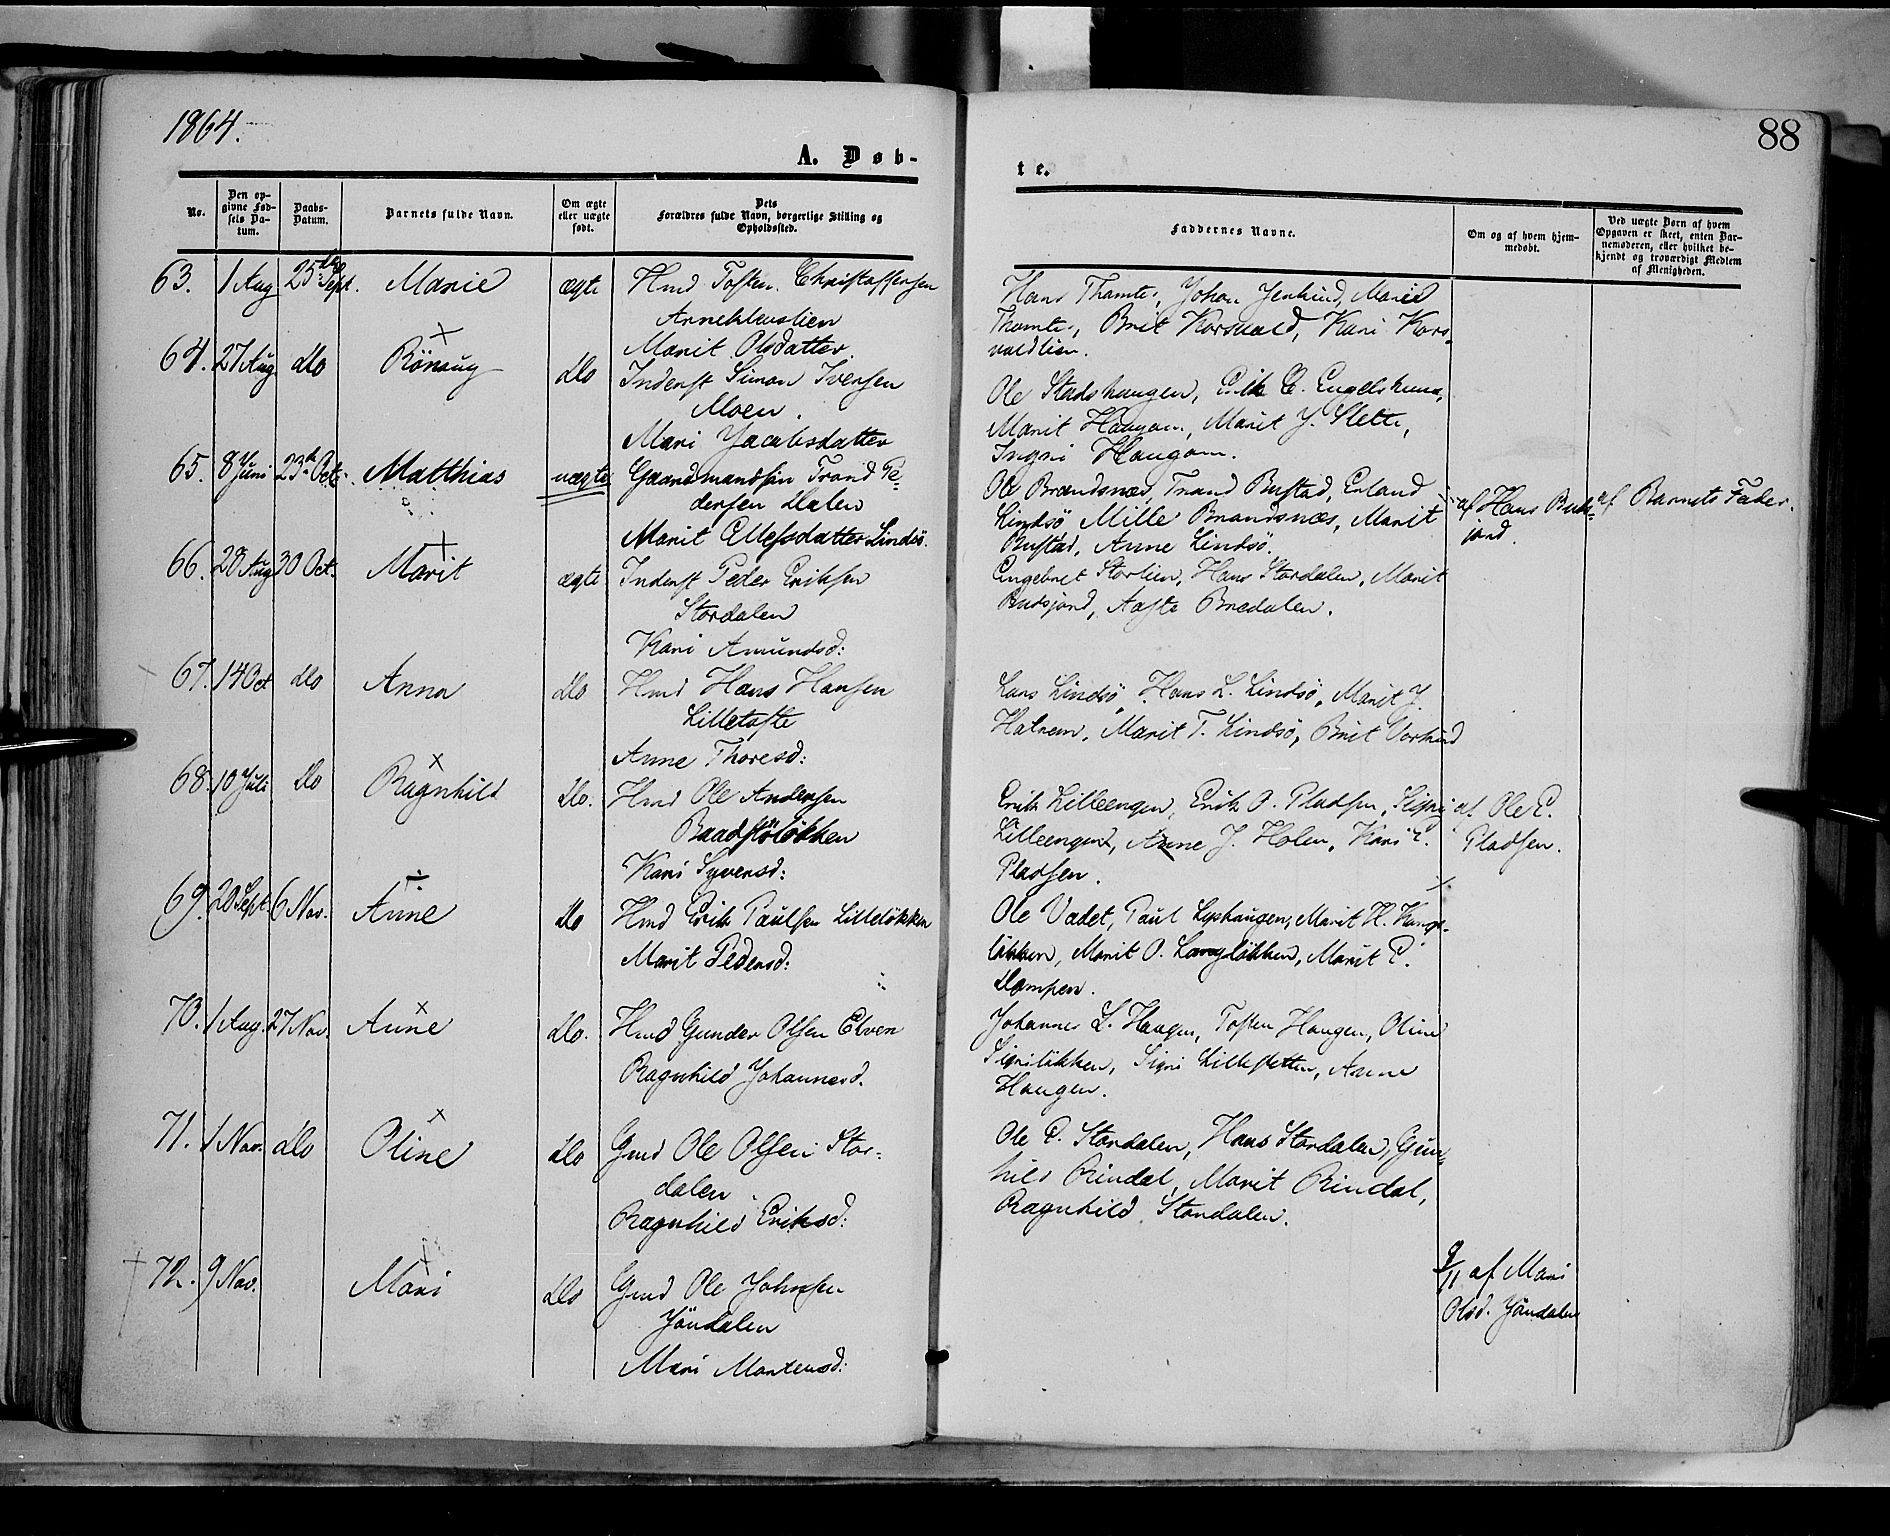 1864.
88
A. Døb-
te.
No.
Den op-
givne Fød-
sels Da-
tum.
Daabs-
Datum.
Barnets fulde Navn.
Om ægte
eller uægte
født.
Dets
Forældres fulde Navn, borgerlige Stilling og
Opholdssted.
Faddernes Navne.
Om og af hvem hjem-
medøbt.
Ved uægte Børn af hvem
Opgaven er skeet, enten Bar-
nemoderen, eller hvilket be-
kjendt og troværdigt Medlem
af Menigheden.
63. 1 Aug 25de Sept. Marie ægte Hmd Tosten Christoffersen
Arneklevslien
Marit Olsdatter
Hans Thamte, Johan Jenhind, Marie
Thamte, Brit Korsvald, Kari Kors-
valdlien.
64. 27 Aug do Rönnug do Inderst Simon Iversen
Moen.
Mari Jacobsdatter
Ole Stadshaugen, Erik E. Engelshuus,
Marit Haugom, Marit J. Slette,
Ingri Haugom.
65. 8 Juni 23de Oct. Matthias uægte Gaardmandssön Trond Pe-
dersen Dalen
Marit Ellefsdatter Lindsö.
Ole Brandsnæs, Trond Bustad, Erland
Lindsö, Mille Brandsnæs, Marit
Bustad, Anne Lindsö.
af Hans Bud-
sjord.
af Barnets Fader.
66. 28 Aug 30 Oct. Marit ægte Inderst Peder Eriksen
Stordalen
Kari Amundsd:
Engebret Storlien, Hans Stordalen, Marit
Budsjord, Aaste Bredalen.
67. 14 Oct do Anna do Hmd Hans Hansen
Lilletofte
Anne Thoresd:
Lars Lindsö, Hans L. Lindsö, Marit J.
Hatrem, Marit T. Lindsö, Brit Vorkind
68. 10 Juli do Ragnhild do. Hmd Ole Andersen
Baadstölökken
Kari Syversd:
Erik Lilleengen, Erik O. Pladsen, Signi
Lilleengen, Anne J. Holen, Kari E.
Pladsen.
af Ole E.
Pladsen.
69. 20 Sept. 6 Nov. Anne do Hmd Erik Paulsen Lillelökken
Marit Pedersd:
Ole Vadet, Paul Lyshaugen, Marit H.
lökken, Marit O. Langlökken, Marit P.
Dompen.
70. 1 Aug. 27 Nov. Anne do. Hmd Gunder Olsen Elven
Ragnhild Johannesd.
Johannes L. Haugen, Tosten Haugen, Oline
Signilökken, Signi Lillesletten, Anne
Haugen.
71. 1 Nov. do Oline do Gmd Ole Olsen Stor-
dalen
Ragnhild Eriksd:
Ole E. Stordalen, Hans Stordalen, Gun-
hild Rindal, Marit Rindal,
Ragnhild Stordalen.
72. 9 Nov. Mari do Gmd Ole Johnsen
Jöndalen
Mari Mortensd:
9/11 af Mari
Olsd. Jöndalen